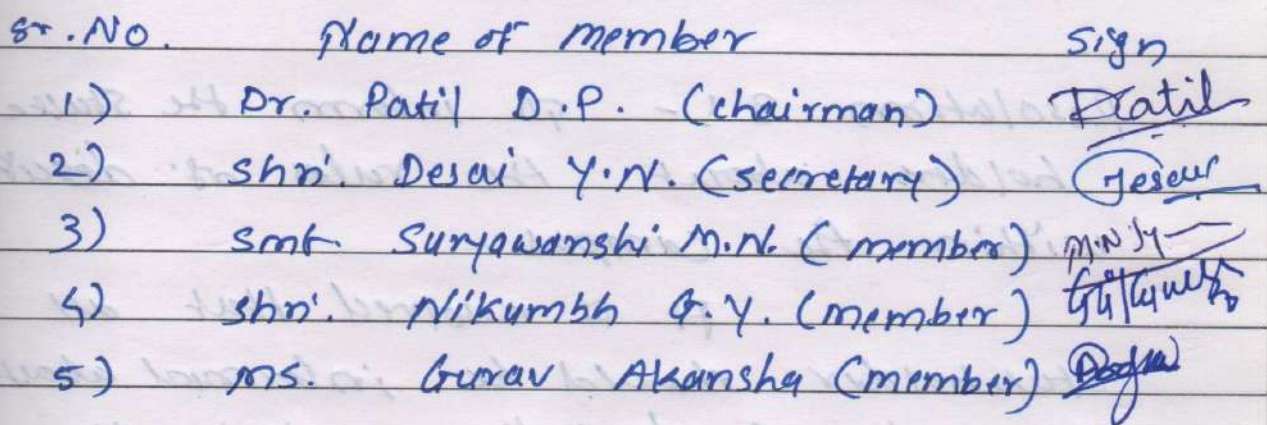 Sr.No. Name of member Sign
1) Dr. Patil D.P. (chairman) Patil
2) Shri. Desai Y.N. (secretary)
3) Smt. Suryawanshi M.N. (member)
4) Shri. Nikumbh G.Y. (member)
5) Ms. Gurav Akansha (member)